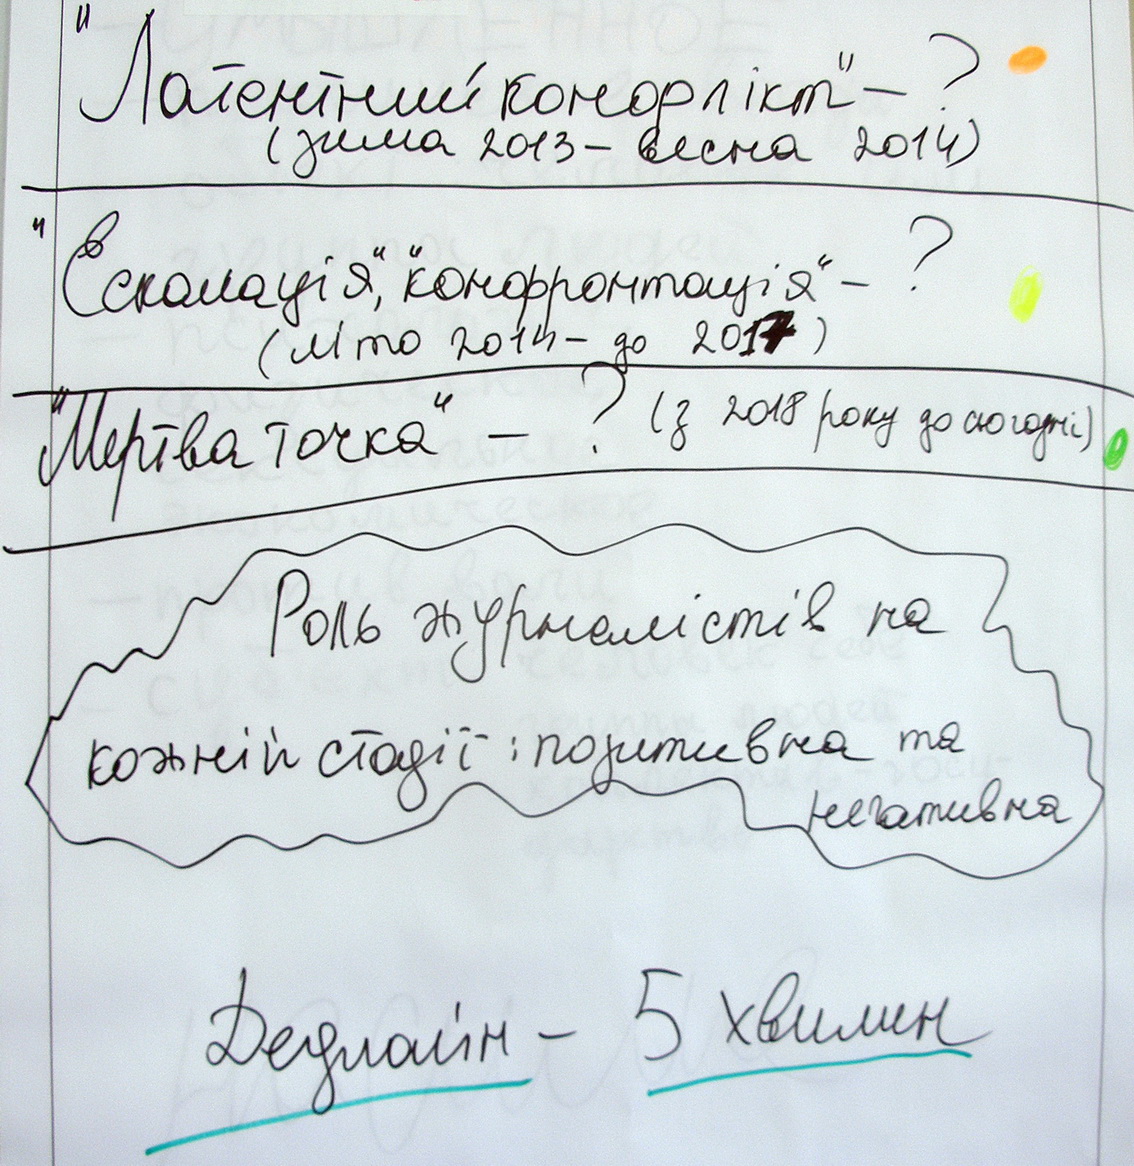 "Латентний конфлікт" – ?
(зима 2013 – весна 2014)
"Ескалація", "конфронтація" – ?
(літо 2014 – до 2017)
"Мертва точка" – ? (з 2018 року до сьогодні)
Роль журналістів на
кожній стадії: позитивна та
негативна
Дедлайн – 5 хвилин